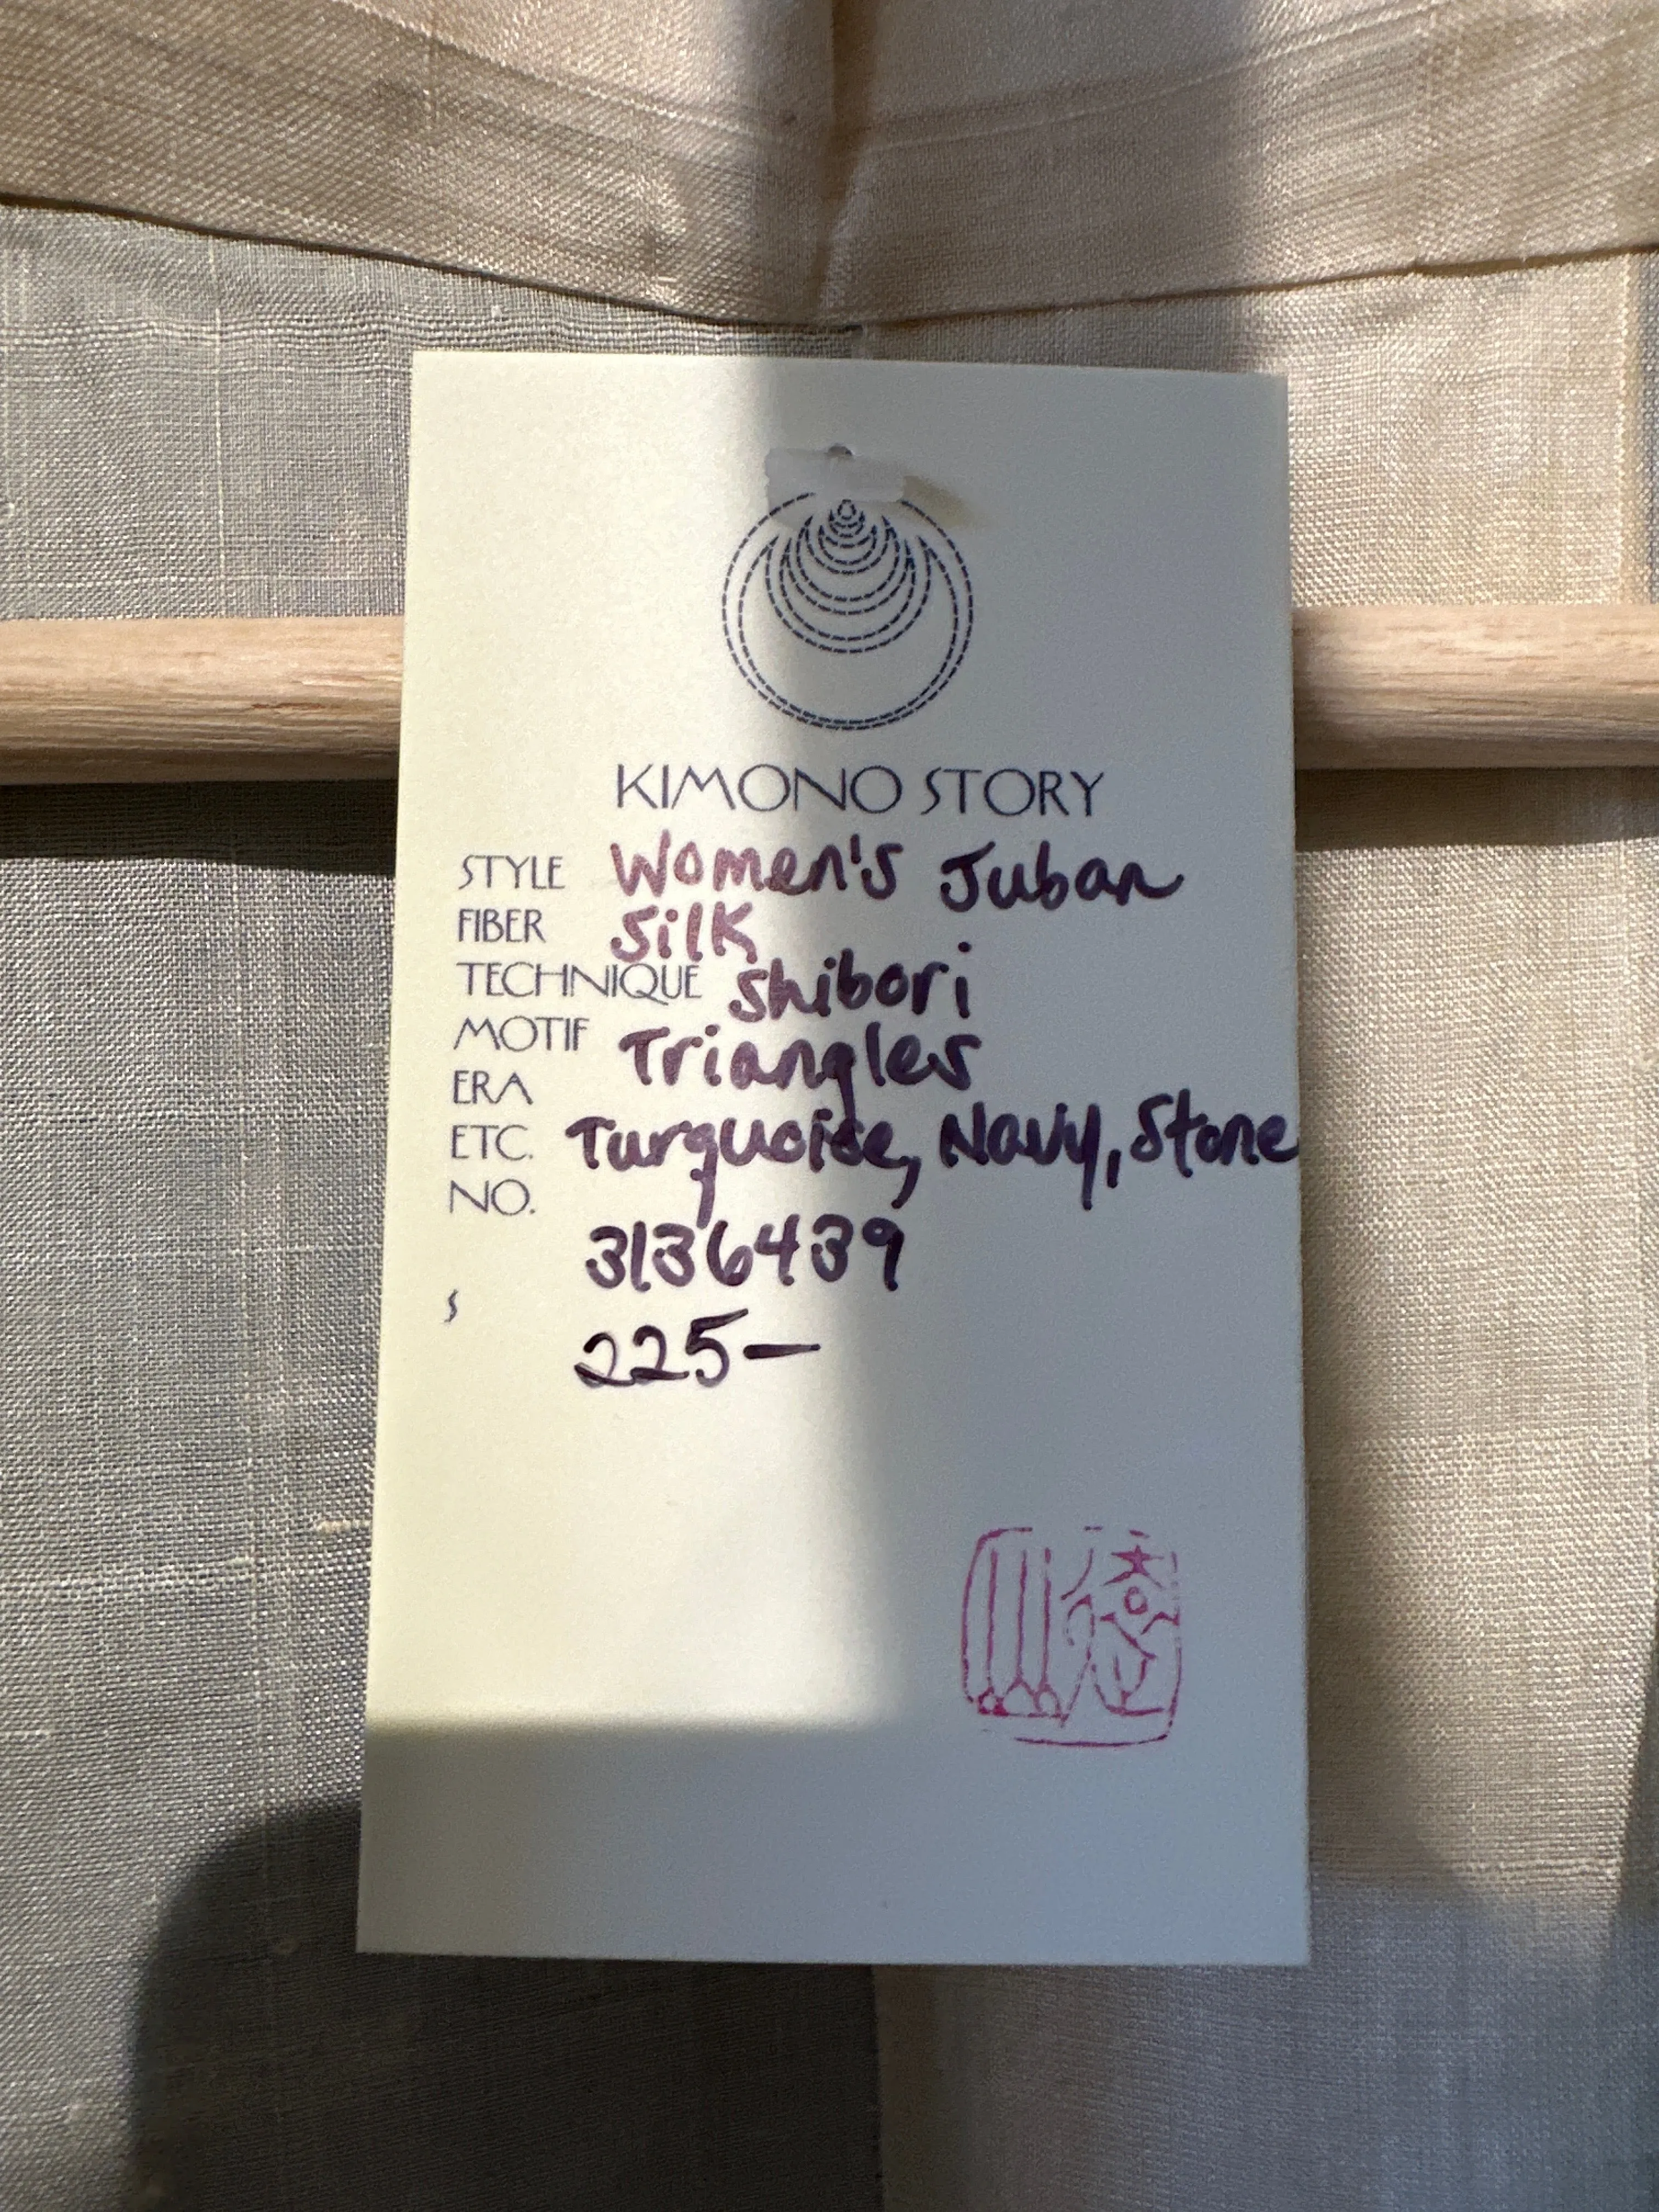 KIMONO STORY
STYLE Women's Juban
FIBER Silk
TECHNIQUE Shibori
MOTIF Triangles
ERA
ETC. Turquoise, Navy, Stone
NO.
3136439
$
225—